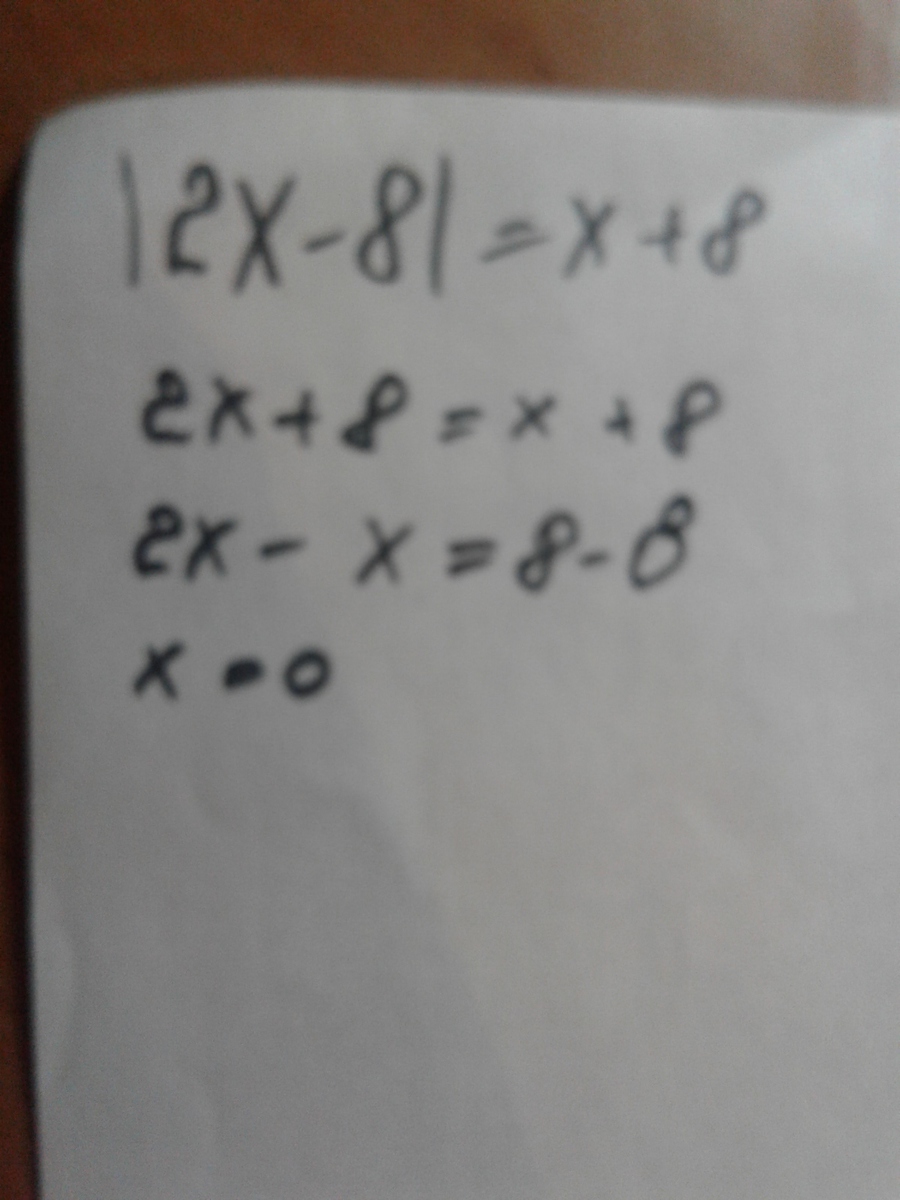 |2x-8|=x+8
2x+8=x+8
2x-x=8-8
x=0